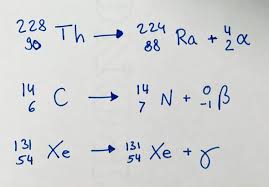 ²²⁸₉₀ Th → ²²⁴₈₈ Ra + ⁴₂ α
¹⁴₆ C → ¹⁴₇ N + ⁰₋₁ β
¹³¹₅₄ Xe → ¹³¹₅₄ Xe + γ